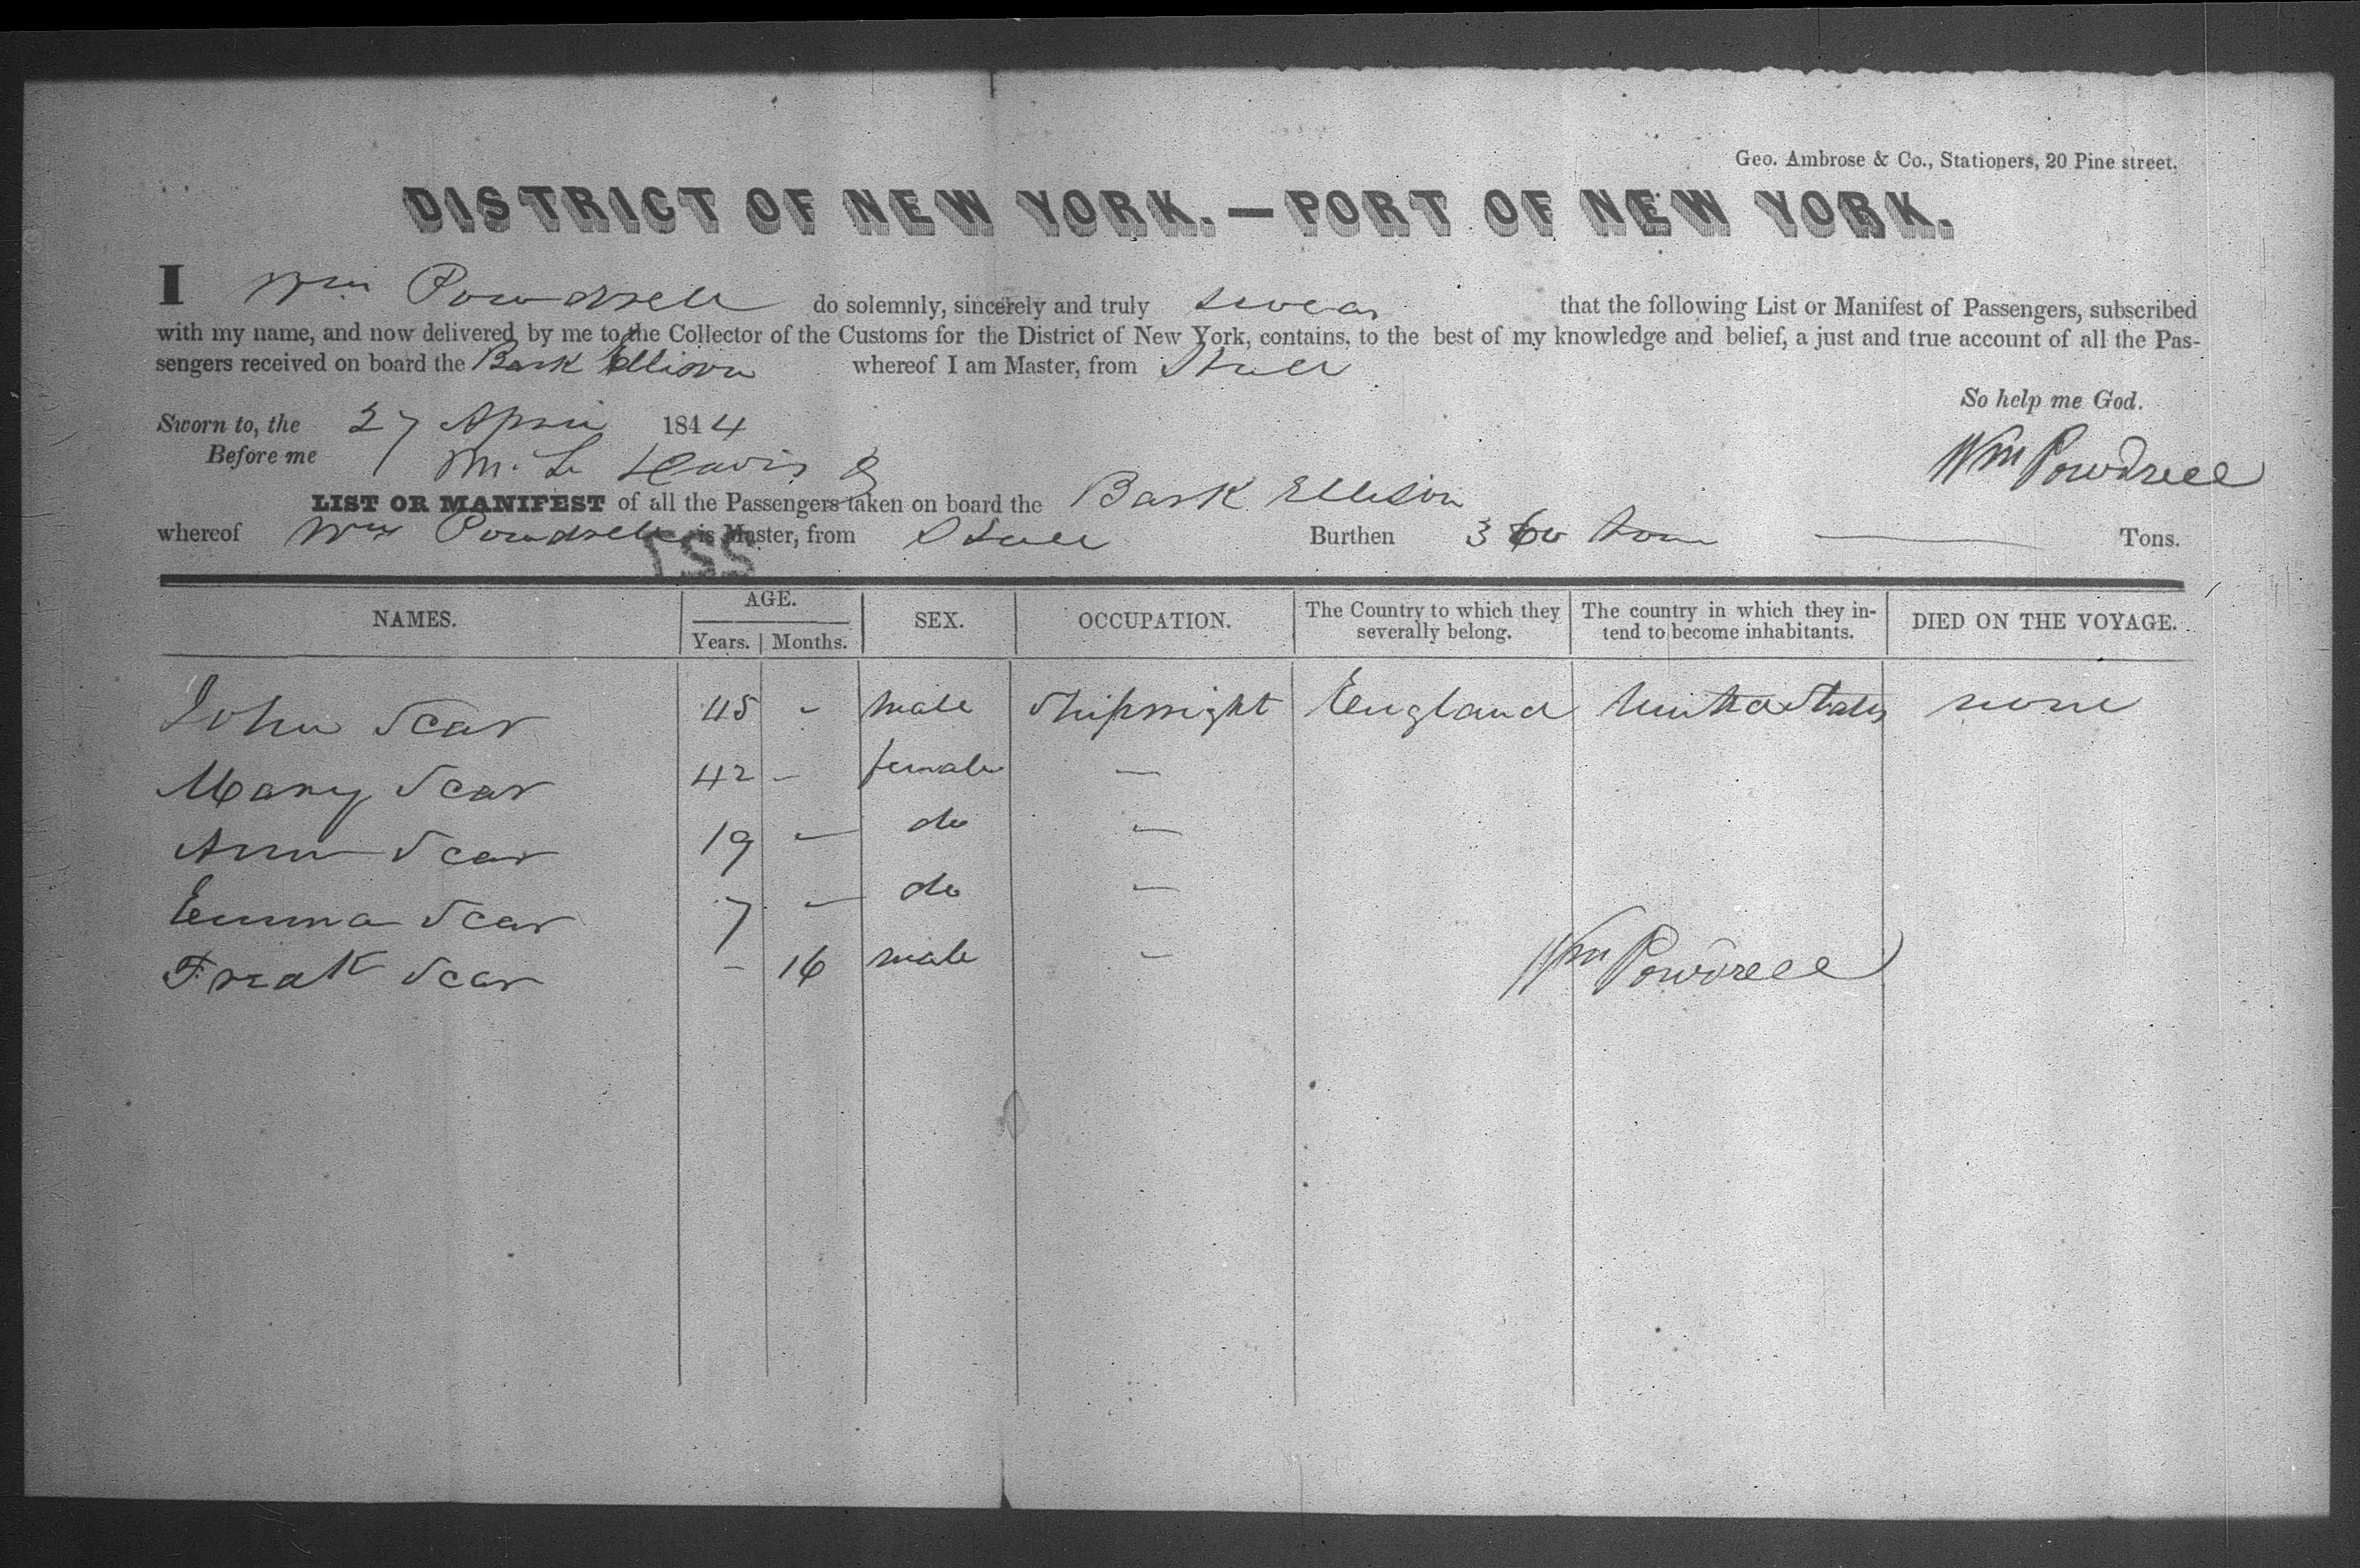 Geo. Ambrose & Co., Stationers, 20 Pine street.
DISTRICT OF NEW YORK.—PORT OF NEW YORK.
I Wm Powdrell do solemnly, sincerely and truly swear that the following List or Manifest of Passengers, subscribed
with my name, and now delivered by me to the Collector of the Customs for the District of New York, contains, to the best of my knowledge and belief, a just and true account of all the Pas-
sengers received on board the Bark Ellison whereof I am Master, from Hull
So help me God.
Sworn to, the 27 April 1844
Before me M. L. Davis
Wm Powdrell
LIST OR MANIFEST of all the Passengers taken on board the Bark Ellison
whereof Wm Powdrell is Master, from Hull Burthen 360 Tons.
155
NAMES. AGE. SEX. OCCUPATION. The Country to which they severally belong. The country in which they in-tend to become inhabitants. DIED ON THE VOYAGE.
Years. Months.
John Scar 45 - male Shipwright England United States none
Mary Scar 42 - female —
Ann Scar 19 — do —
Emma Scar 7 — do —
Freak Scar - 16 male -
Wm Powdrell